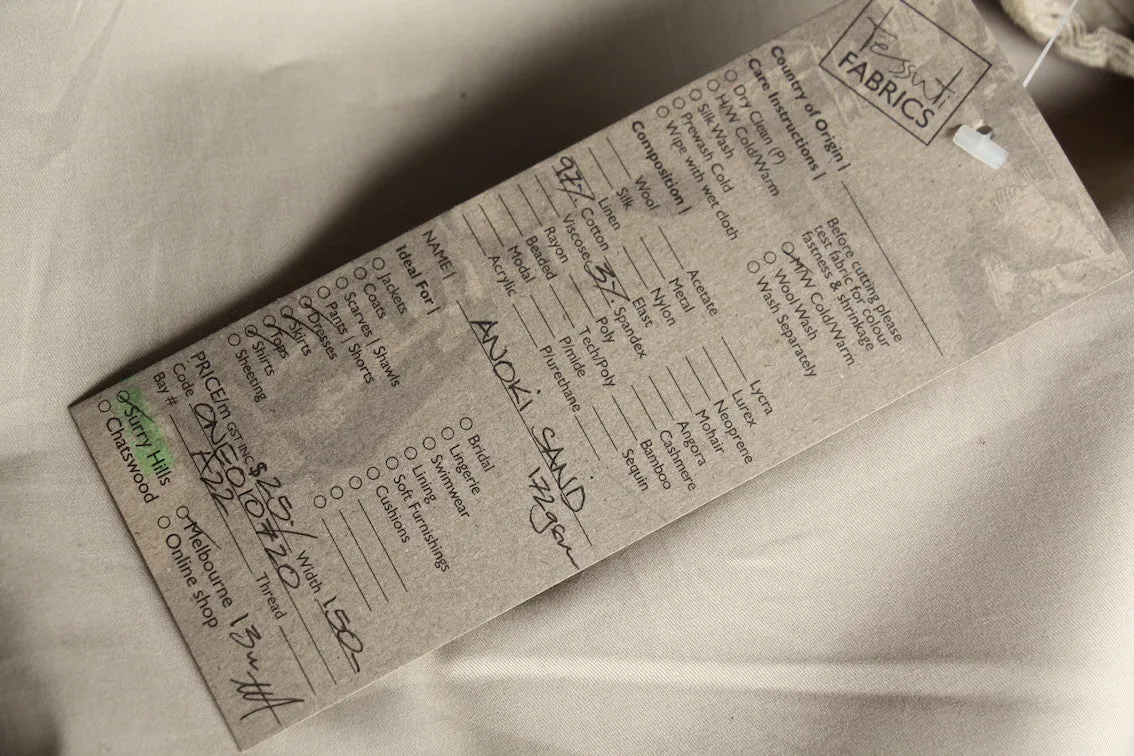 Tessuti
FABRICS
Country of Origin |
Care Instructions |
Dry Clean (P)
H/W Cold/Warm
Silk Wash
Prewash Cold
Wipe with wet cloth
Before cutting please
test fabric for colour
fastness & shrinkage
M/W Cold/Warm
Wool Wash
Wash Separately
Composition |
Wool Acetate Lycra
Silk Metal Lurex
Linen Nylon Neoprene
97% Cotton Elast Mohair
Viscose 3% Spandex Angora
Rayon Poly Cashmere
Beaded Tech/Poly Bamboo
Modal P/mide Sequin
Acrylic P/urethane
NAME | ANOKI SAND
172gsm
Ideal For |
Jackets
Coats
Scarves | Shawls
Pants | Shorts
Dresses
Skirts
Tops
Shirts
Sheeting
Bridal
Lingerie
Swimwear
Lining
Soft Furnishings
Cushions
PRICE/m GST INC $25/ Width 150-
Code ONE010#20
Bay # A22 Thread
Surry Hills Melbourne 13m
Chatswood Online shop